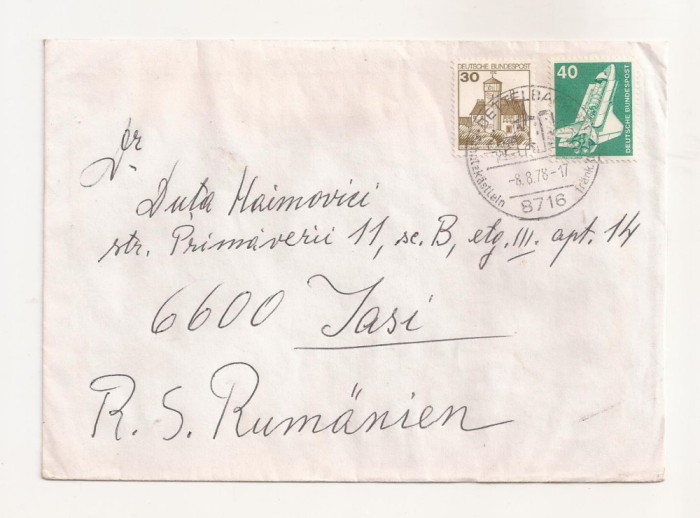 DEUTSCHE BUNDESPOST
30
40
DEUTSCHE BUNDESPOST
-8.8.78-17
8716
Dr
Duța Haimovici
str. Primăverii 11, sc. B, etg. III. apt. 14
6600 Iasi
R. S. Rumänien